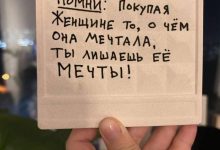 ПОМНИ: ПОКУПАЯ
ЖЕНЩИНЕ ТО, О ЧЁМ
ОНА МЕЧТАЛА,
ТЫ ЛИШАЕШЬ ЕЁ
МЕЧТЫ!